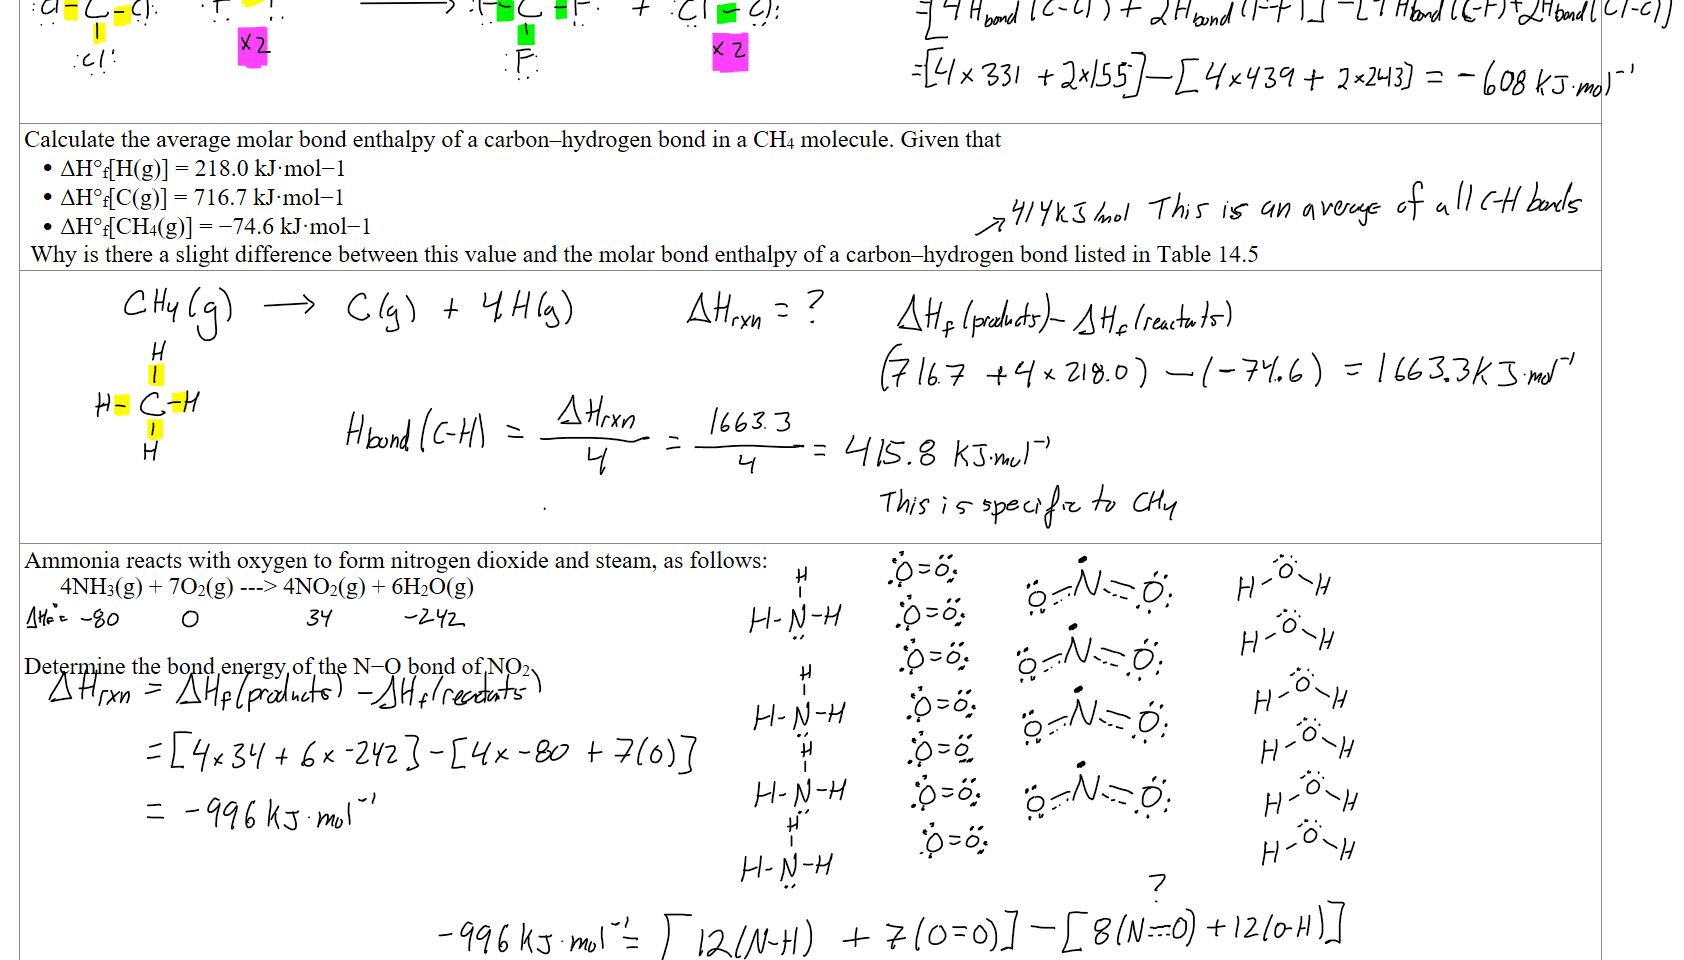 :Cl - C - Cl: F ⟶ :F - C - F: + :Cl - Cl:
=[4Hbond(C-Cl) + 2Hbond(F-F)] - [4Hbond(C-F)+2Hbond(Cl-Cl)]
:Cl: x2 :F: x2
=[4×331 + 2×155] - [4×439 + 2×243] = -608 KJ·mol⁻¹
Calculate the average molar bond enthalpy of a carbon–hydrogen bond in a CH4 molecule. Given that
• ΔH°f[H(g)] = 218.0 kJ·mol−1
• ΔH°f[C(g)] = 716.7 kJ·mol−1
• ΔH°f[CH4(g)] = −74.6 kJ·mol−1
→ 414KJ/mol This is an average of all C-H bonds
Why is there a slight difference between this value and the molar bond enthalpy of a carbon–hydrogen bond listed in Table 14.5
CH4(g) ⟶ C(g) + 4H(g) ΔHrxn = ? ΔHf(products)-ΔHf(reactants)
(716.7 + 4×218.0) - (-74.6) = 1663.3KJ·mol⁻¹
H
H - C - H
H
Hbond(C-H) = ΔHrxn/4 = 1663.3/4 = 415.8 KJ·mol⁻¹
This is specific to CH4
Ammonia reacts with oxygen to form nitrogen dioxide and steam, as follows:
4NH3(g) + 7O2(g) ---> 4NO2(g) + 6H2O(g)
ΔHf°= -80 0 34 -242
Determine the bond energy of the N−O bond of NO2.
ΔHrxn = ΔHf(products) - ΔHf(reactants)
=[4×34 + 6×-242] - [4×-80 + 7(0)]
= -996 KJ·mol⁻¹
H
H-N-H
H
H-N-H
H
H-N-H
H
H-N-H
O=O
O=O
O=O
O=O
O=O
O=O
O=O
O=N=O
O=N=O
O=N=O
O=N=O
H-O-H
H-O-H
H-O-H
H-O-H
H-O-H
H-O-H
?
-996 KJ·mol⁻¹= [12(N-H) + 7(O=O)] - [8(N=O) + 12(O-H)]